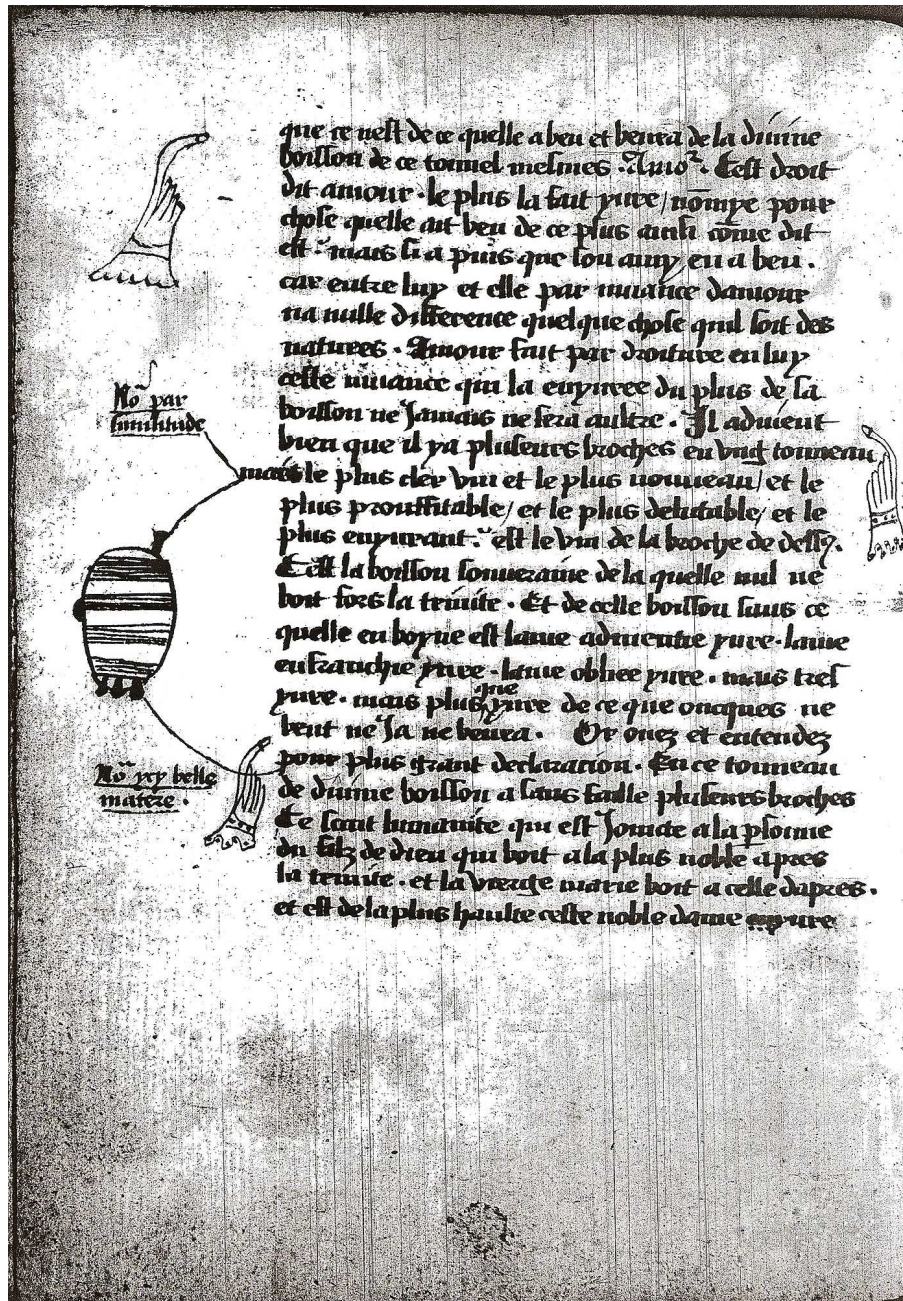 que ce nest de ce quelle a beu et beura de la diuine
boisson de ce tonnel mesmes . Amoʳ. Cest droit
dit amour . le plus la fait yure / nōmye pour
chose quelle ait beu de ce plus ainsi cōme dit
est . mais si a puis que son amy en a beu .
car entre luy et elle par muance damour
na nulle difference quelque chose quil soit des
natures . Amour fait par droiture en luy
ceste muance qui la enyuree du plus de sa
boisson ne Jamais ne sera aultre . Il aduient
bien que il ya pluseurs broches en vng tonneau
mais le plus cler vin et le plus nouueau / et le
plus prouffitable / et le plus delitable / et le
plus enyurant . est le vin de la broche de dessꝰ.
Cest la boisson souueraine de la quelle nul ne
boit fors la trinite . Et de celle boisson sans ce
quelle en boyue est lame adnientie yure . lame
enfranchie yure . lame obliee yure . mais tres
yure . mais plus que yure de ce que oncques ne
beut ne Ja ne beura . Or ouez et entendez
pour plus grant declaracion . En ce tonneau
de diuine boisson a sans faille pluseurs broches
Ce scait humanite qui est Joincte a la psonne
du filz de dieu qui boit a la plus noble apres
la trinite . et la vierge marie boit a celle dapres .
et est de la plus haulte ceste noble dame yure
Nōᵃ par
similitude
Nōᵃ ycy belle
matere .